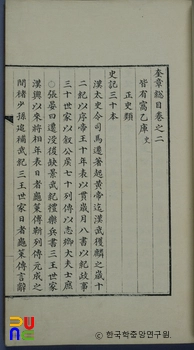 奎章總目卷之二
皆有窩乙庫 史
正史類
史記三十本
漢太史令司馬遷著起黃帝迄漢武獲麟之歲十
二紀以序帝王十年表以貫歲月八書以紀政事
三十世家以叙公侯七十列傳以志卿大夫士庶
張晏曰遷沒後缺景武紀禮樂兵書三王世家
漢興以來將相年表日者龜策傳靳列傳元成之
間褚少孫追補武紀三王世家日者龜策傳言辭
한국학중앙연구원